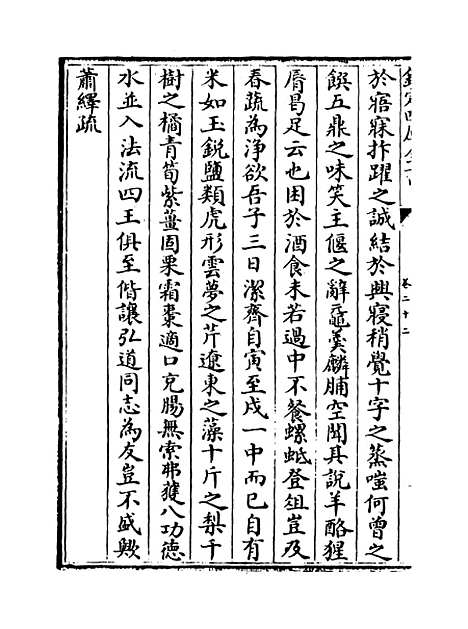 於寤寐抃躍之誠結於興寢稍覺十字之蒸嗤何曾之
饌五鼎之味笑主偃之辭黿羹麟脯空聞其說羊酪猩
脣曷足云也困於酒食未若過中不餐螺蚳登俎豈及
春蔬為淨欲吾子三日潔齊自寅至戌一中而已自有
米如玉鋭鹽類虎形雲夢之芹遼東之藻十斤之梨千
樹之橘青荀紫薑固栗霜棗適口充腸無索弗獲八功徳
水並入法流四王俱至偕讓弘道同志為友豈不盛歟
蕭繹疏
卷二十二